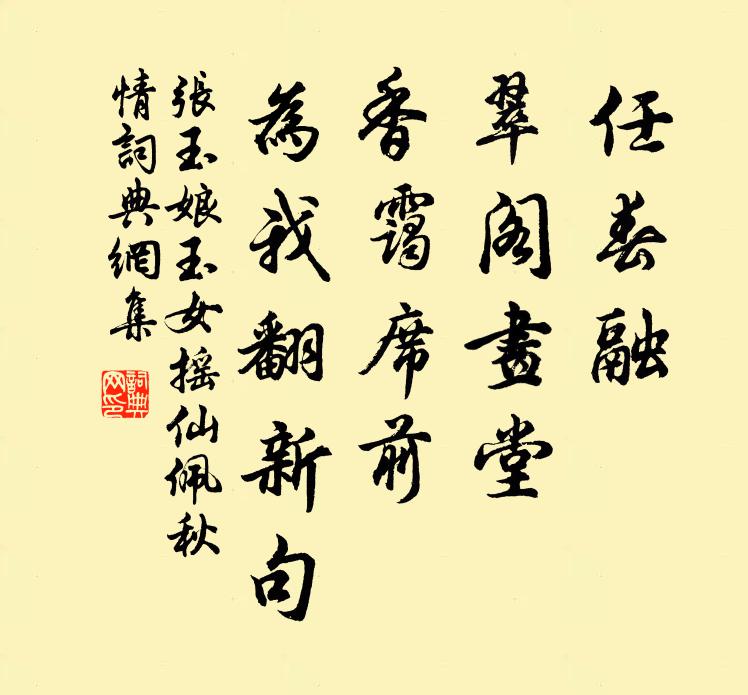 任春融
翠阁畫堂
香靄席前
為我翻新句
張玉娘玉女摇仙佩秋
情詞典網集
詞典
网印